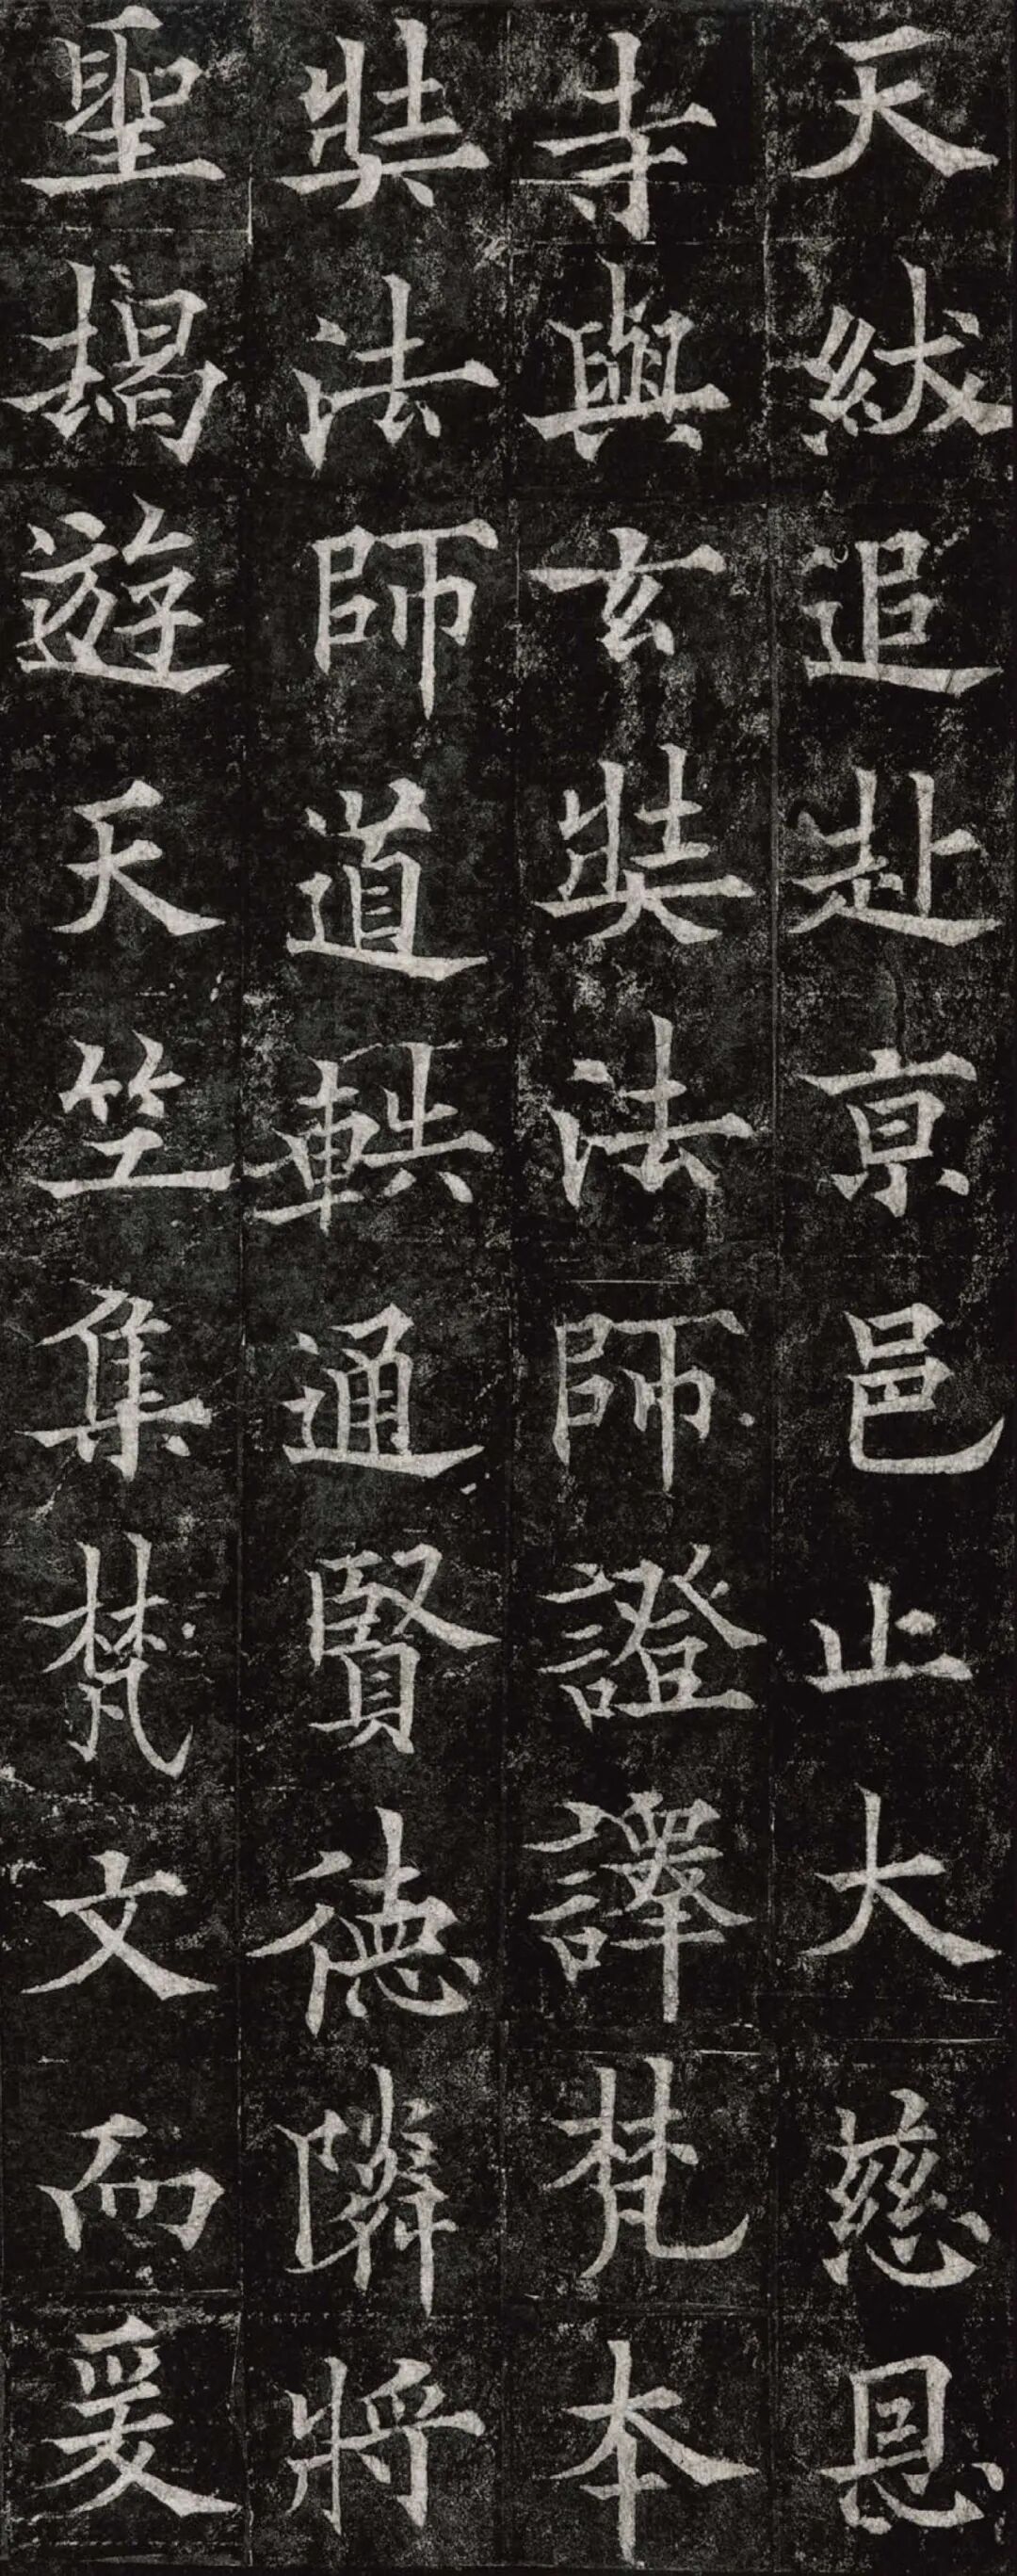 天紱追赴亰邑止大慈恩
寺與玄奘法師證譯梵本
奘法師道軼通賢德隣將
聖揭遊天竺集梵文而爰